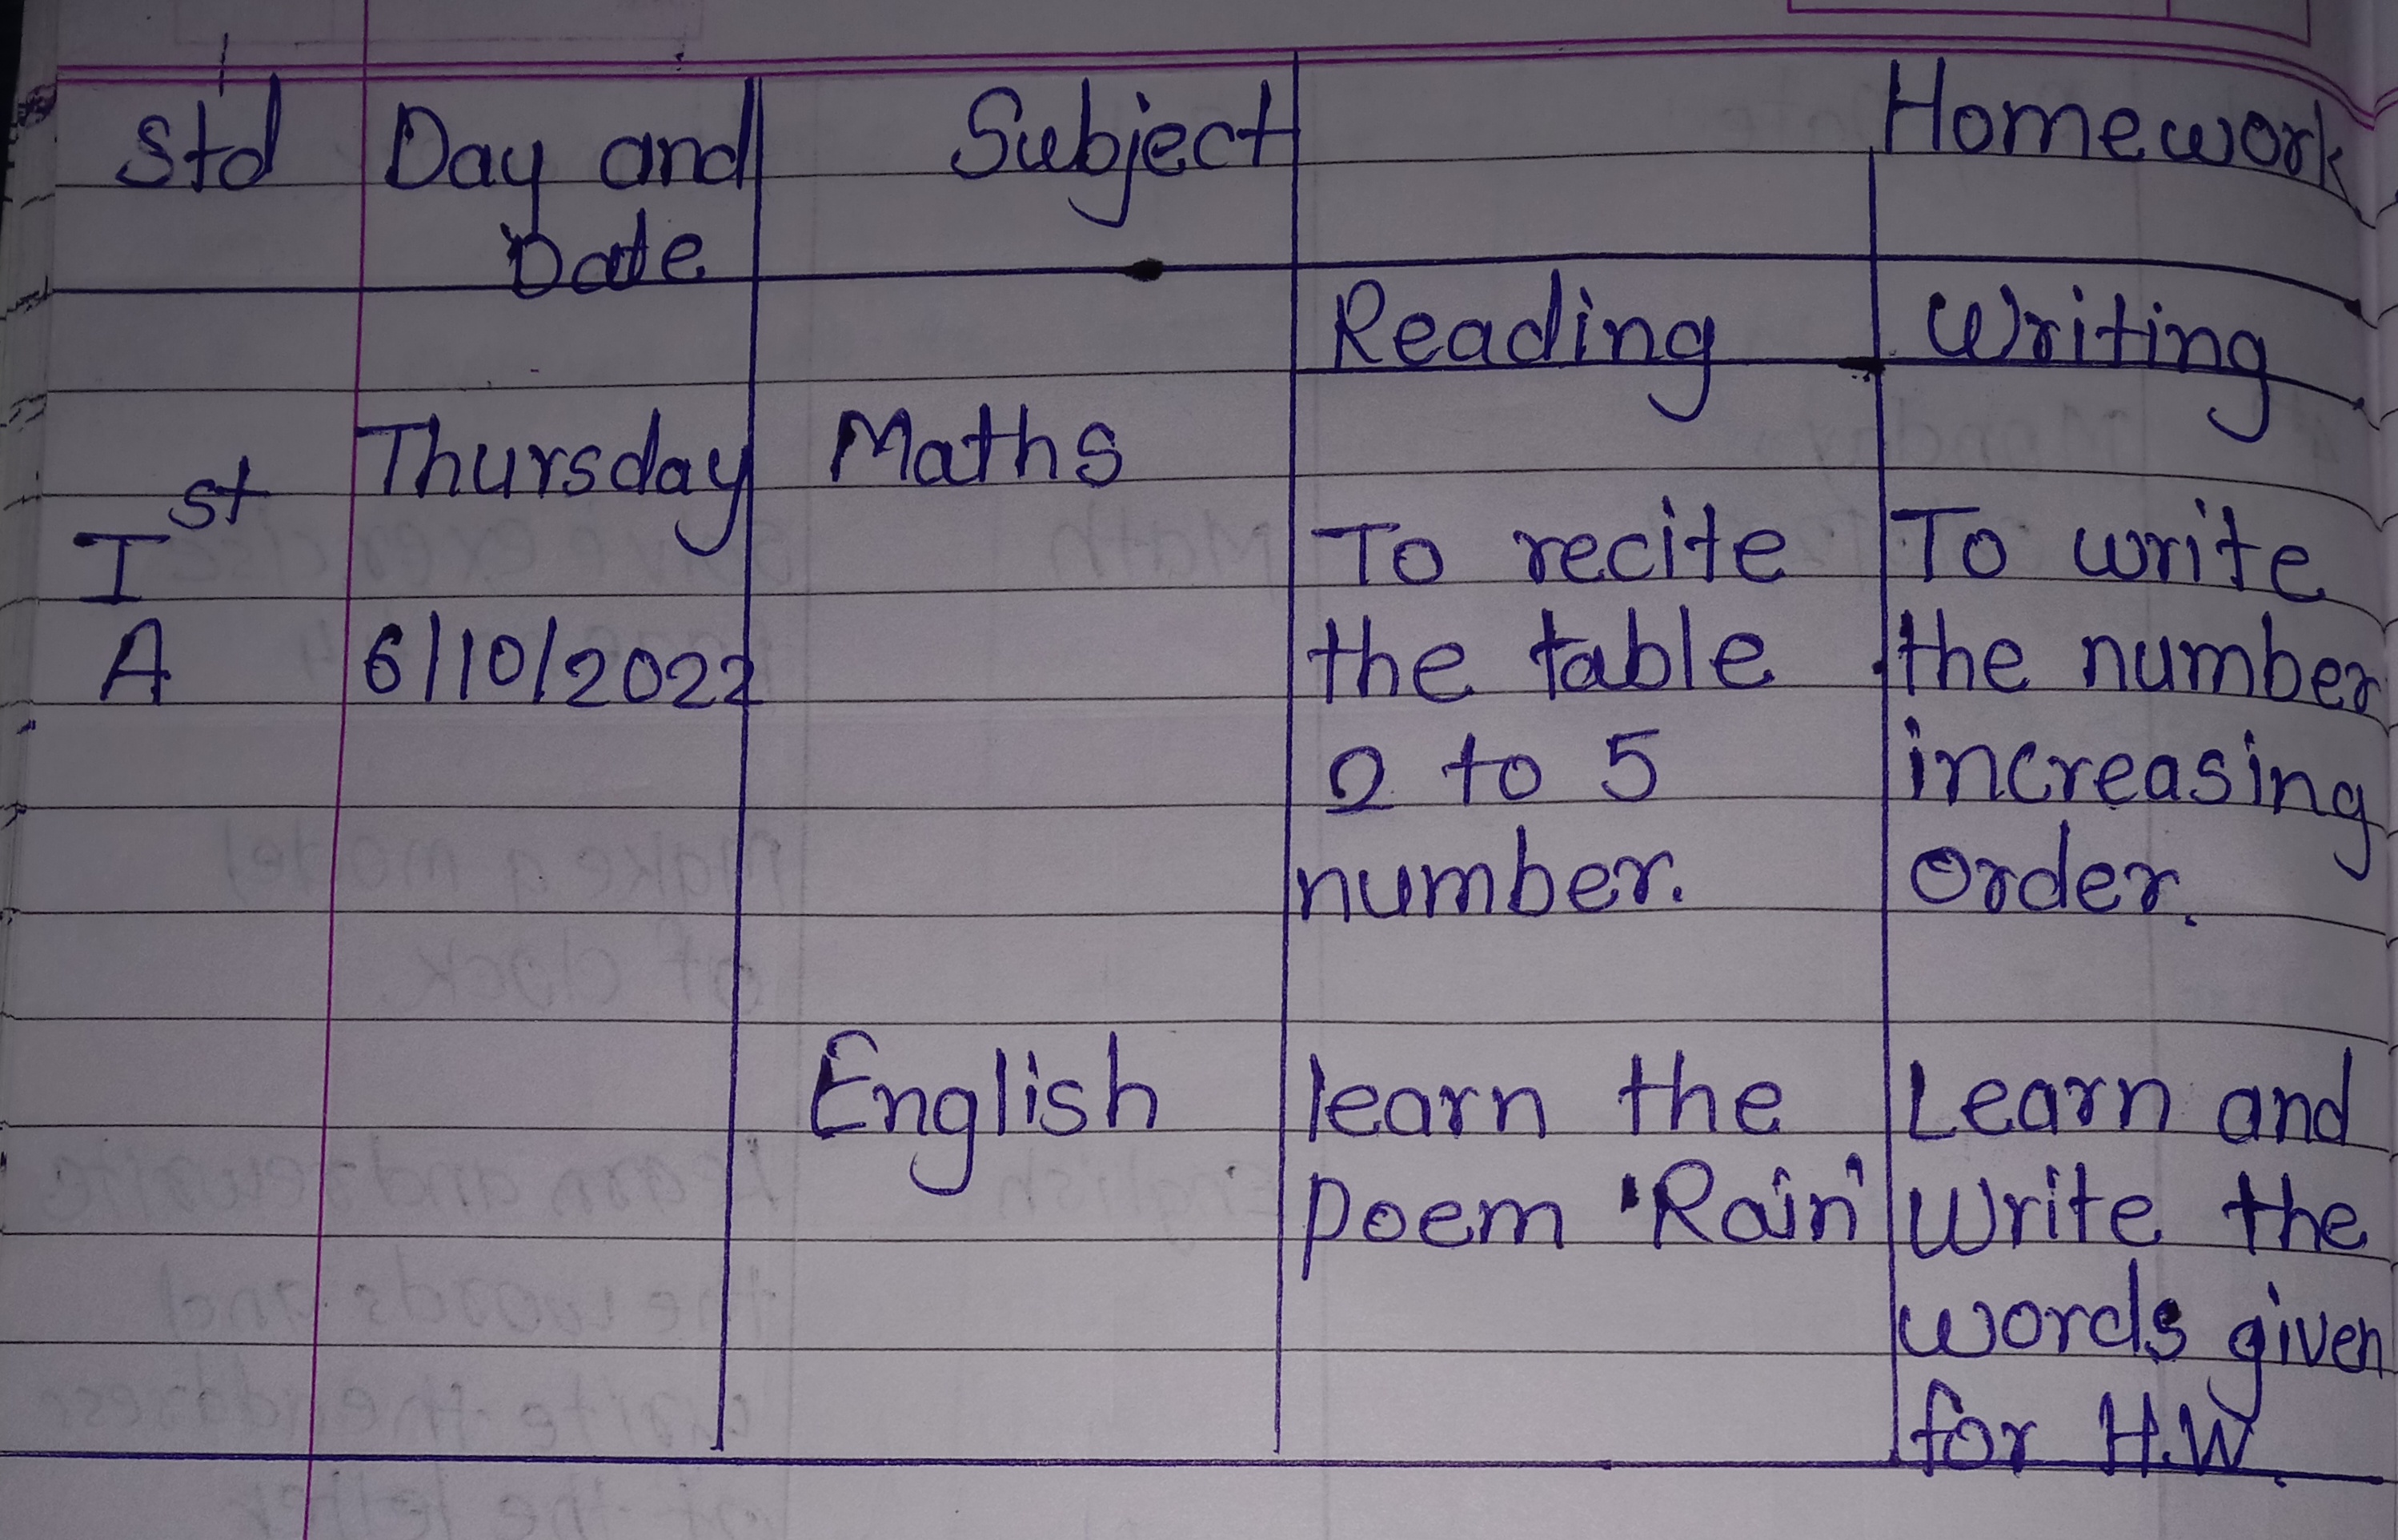 Std Day and Subject Homework
Date
Reading Writing
Thursday Maths
Ist To recite To write
A 6/10/2022 the table the number
2 to 5 increasing
number. order.
English learn the Learn and
Poem 'Rain' Write the
words given
for H.W.